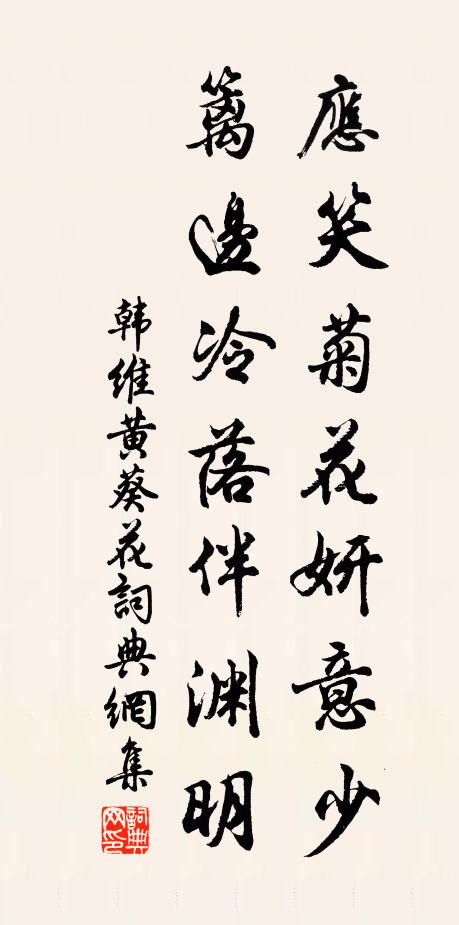 應笑菊花妍意少
籬邊冷落伴渊明
韩維黄葵花詞典網集
詞典网印